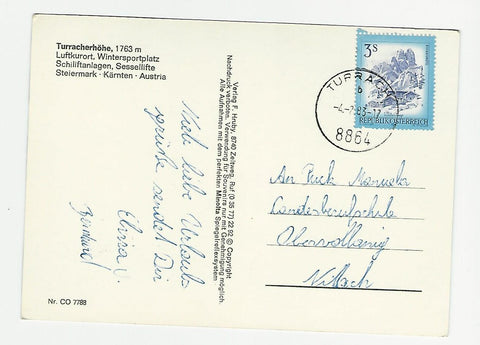 Turracherhöhe, 1763 m
Luftkurort, Wintersportplatz
Schiliftanlagen, Sessellifte
Steiermark · Kärnten · Austria
Verlag F. Hruby, 8740 Zeltweg, Ruf (0 35 77) 22 92 © Copyright
Nachdruck verboten. Verwendung für Souvenirs nur mit Genehmigung möglich.
Alle Aufnahmen mit dem perfekten Minolta Spiegelreflexsystem
liebe Urlaubs
grüße sendet Dir
Elvira u.
Nr. CO 7788
3S
REPUBLIK ÖSTERREICH
TURRACH
8864
An Maruska
Landesberufschule
Obervellach
Villach